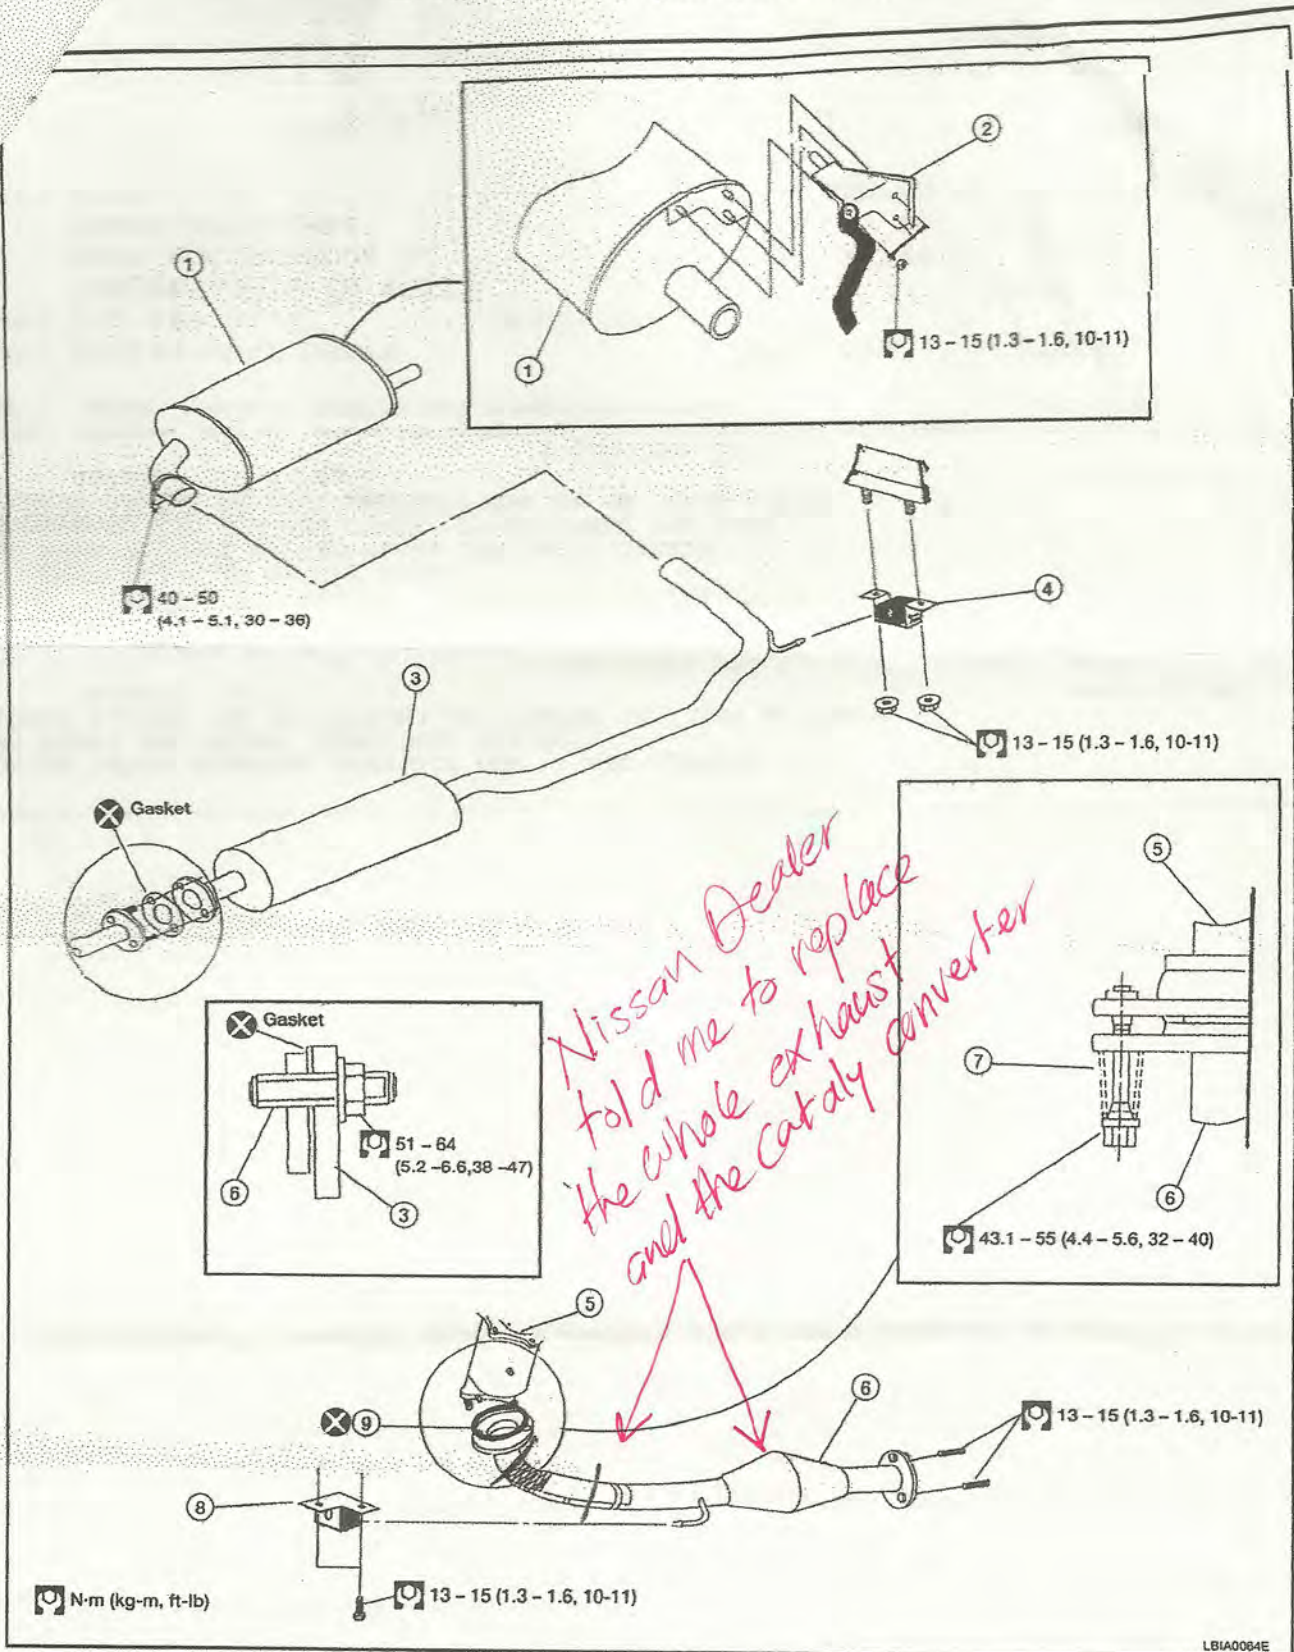 2
1
1
13 – 15 (1.3 – 1.6, 10-11)
40 – 50
(4.1 – 5.1, 30 – 36)
4
3
13 – 15 (1.3 – 1.6, 10-11)
Gasket
5
7
6
43.1 – 55 (4.4 – 5.6, 32 – 40)
Gasket
51 – 64
(5.2 –6.6,38 –47)
6
3
Nissan Dealer
told me to replace
the whole exhaust
and the cataly converter
5
6
9
13 – 15 (1.3 – 1.6, 10-11)
8
N·m (kg-m, ft-lb)
13 – 15 (1.3 – 1.6, 10-11)
LBIA0064E